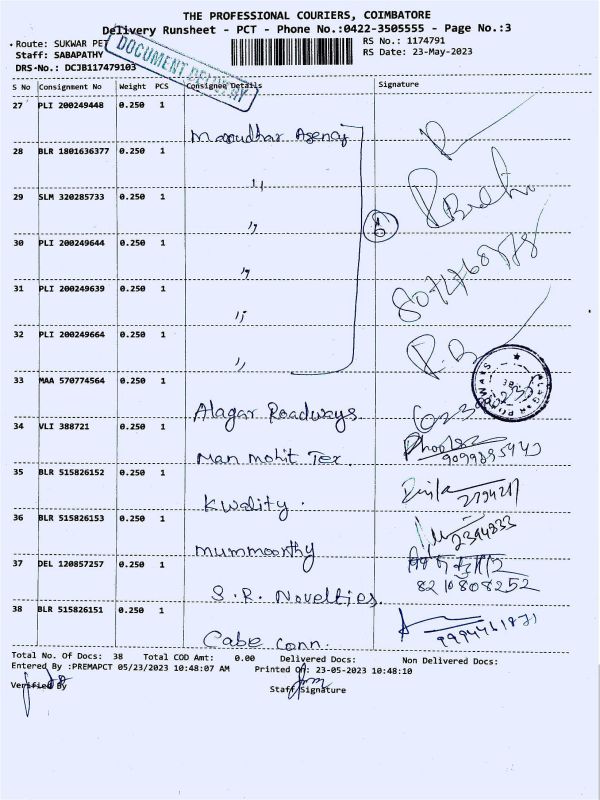 THE PROFESSIONAL COURIERS, COIMBATORE
Delivery Runsheet - PCT - Phone No.:0422-3505555 - Page No.:3
Route: SUKWAR PET
RS No.: 1174791
Staff: SABAPATHY
RS Date: 23-May-2023
DRS-No.: DCJB117479103
DOCUMENT DELIVERY
S No Consignment No Weight PCS Consignee Details Signature
27 PLI 200249448 0.250 1
Marudhar Agency
28 BLR 1801636377 0.250 1
"
29 SLM 320285733 0.250 1
"
6
30 PLI 200249644 0.250 1
"
31 PLI 200249639 0.250 1
"
32 PLI 200249664 0.250 1
"
33 MAA 570774564 0.250 1
Alagar Roadways
34 VLI 388721 0.250 1
Man mohit Tex.
35 BLR 515826152 0.250 1
Kwality.
36 BLR 515826153 0.250 1
Mummoorthy
37 DEL 120857257 0.250 1
S.R. Novelties.
8210808252
38 BLR 515826151 0.250 1
Cabe Conn.
Total No. Of Docs: 38 Total COD Amt: 0.00 Delivered Docs: Non Delivered Docs:
Entered By :PREMAPCT 05/23/2023 10:48:07 AM Printed On: 23-05-2023 10:48:10
Verified By
Staff Signature